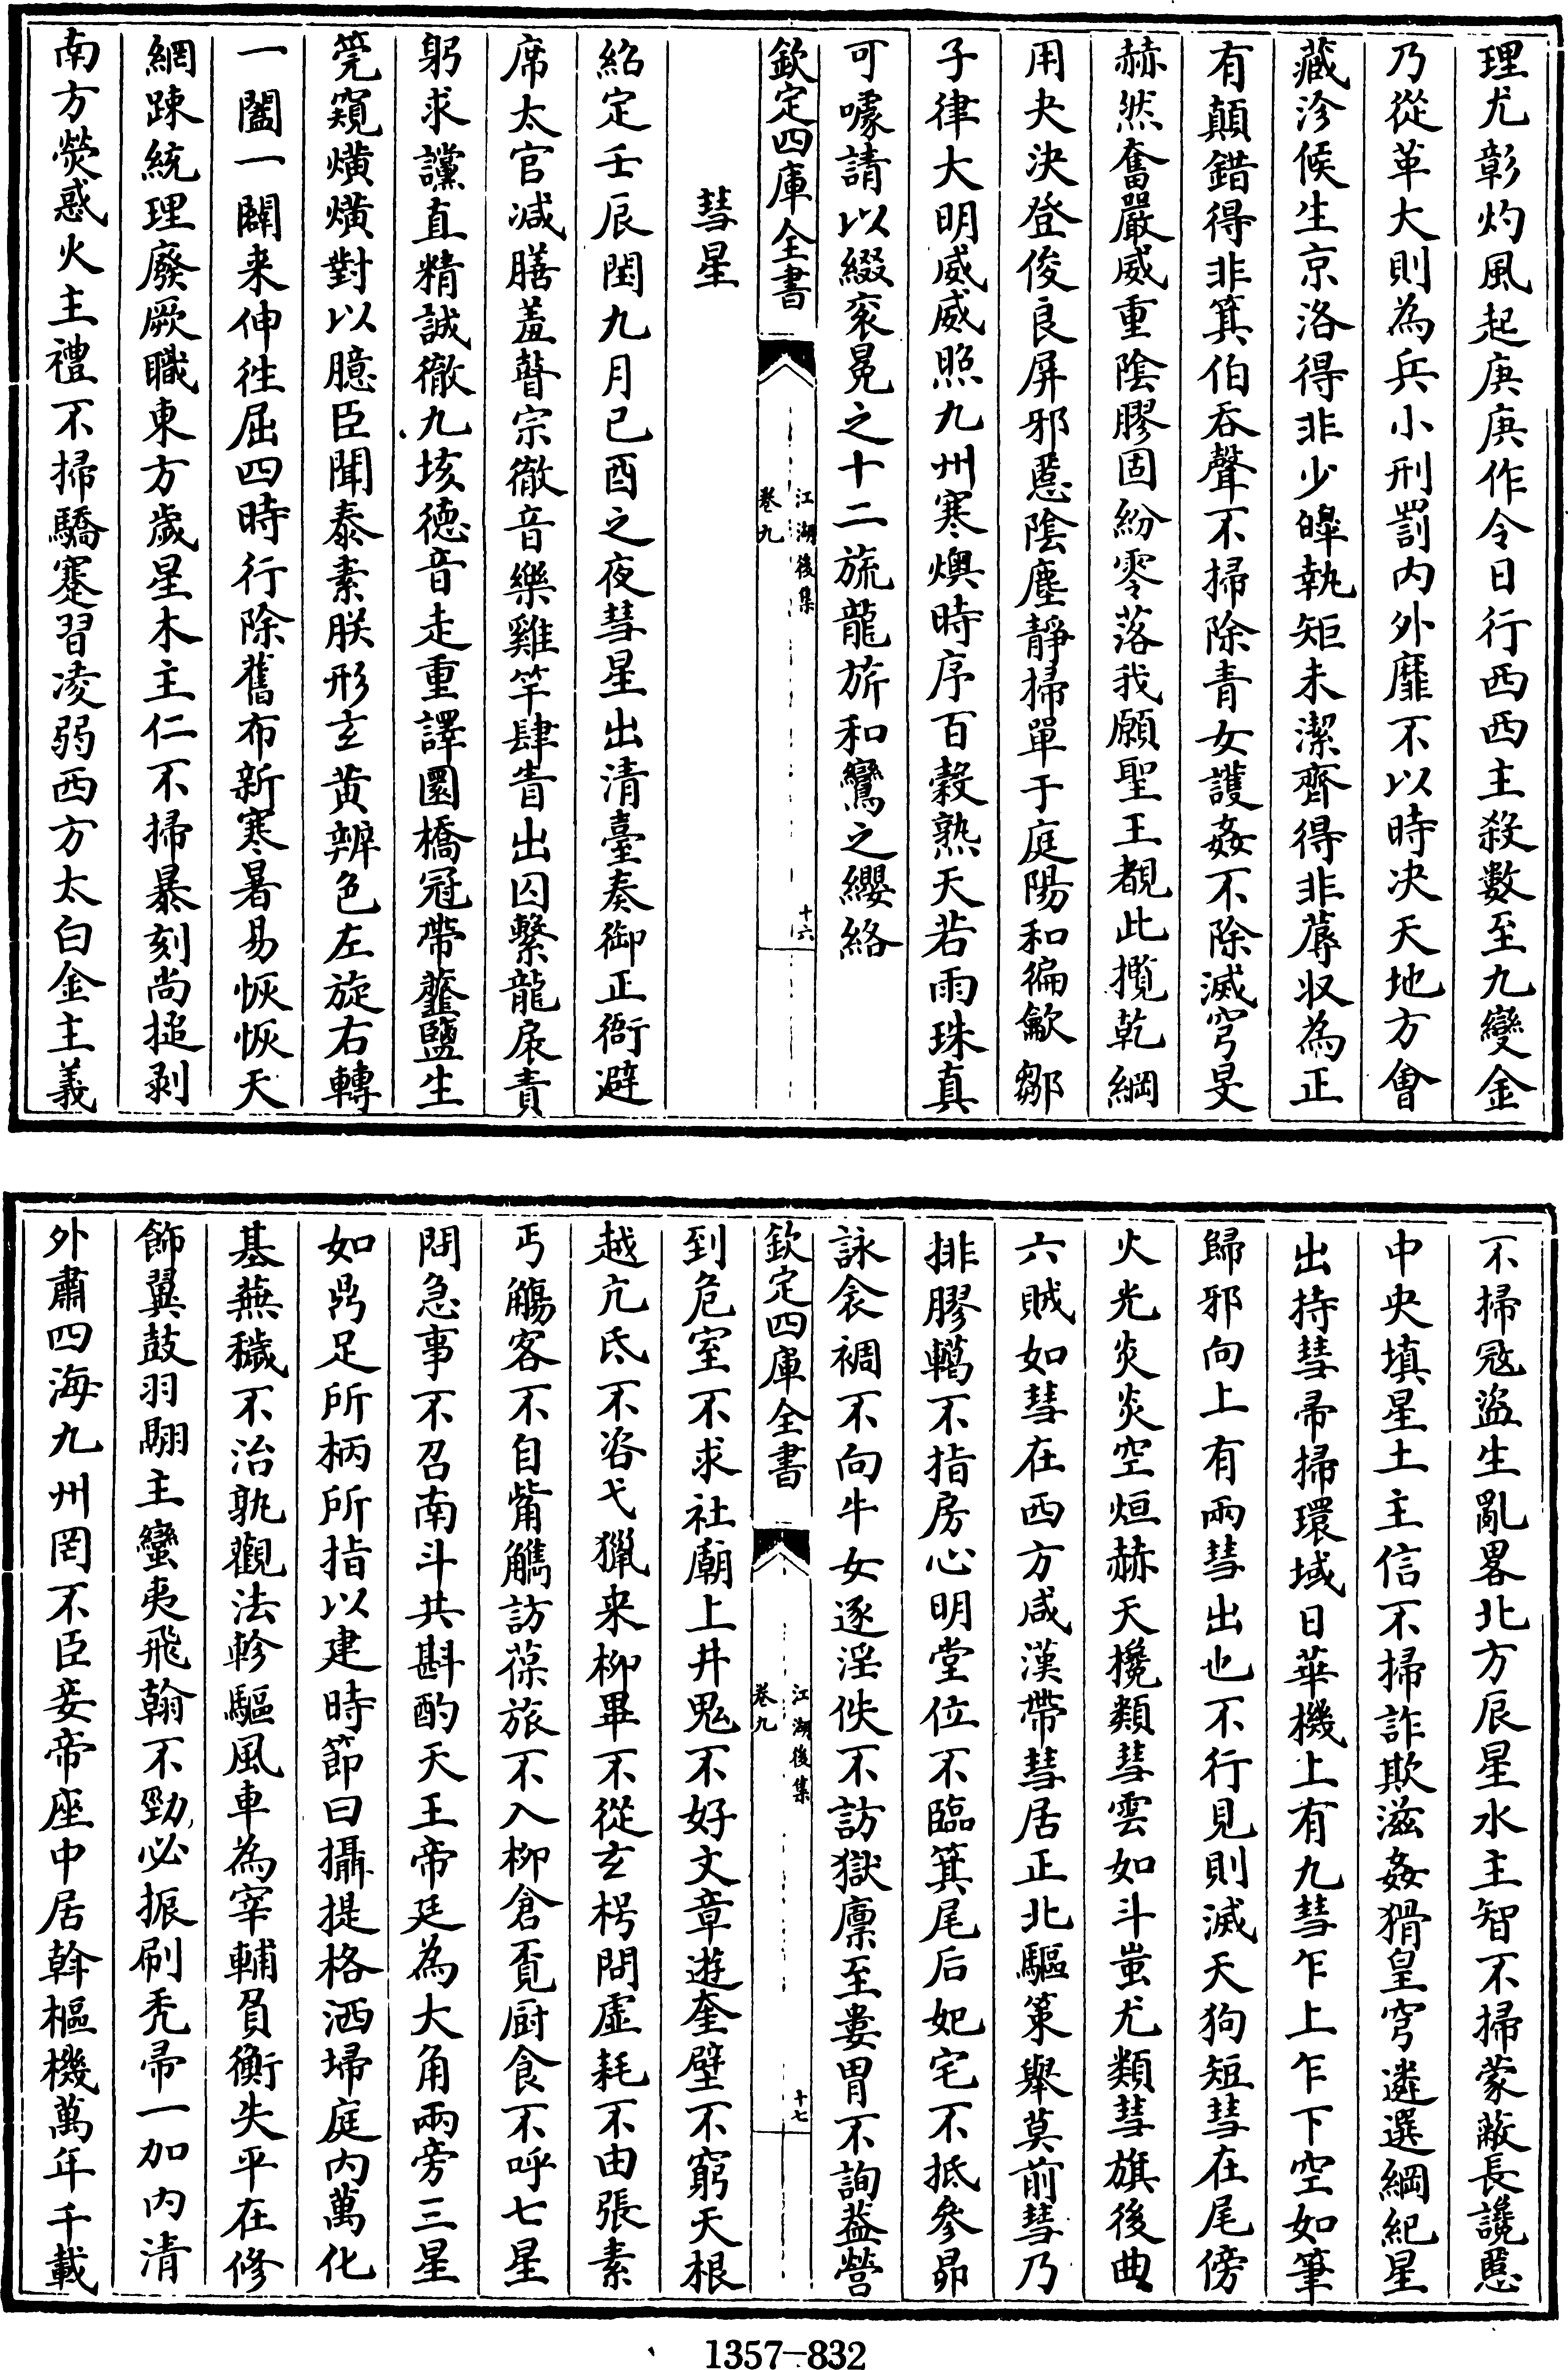 理尤彰灼風起庚庚作令日行西西主殺數至九變金
乃從革大則為兵小刑罰內外靡不以時决天地方㑹
藏沴候生京洛得非少皥執矩未潔齊得非蓐収為正
有顛錯得非箕伯吞聲不掃除青女護姦不除滅穹旻
赫然奮嚴威重陰膠固紛零落我願聖王覩此攬乾綱
用夬決登俊良屏邪慝陰塵靜掃單于庭陽和徧歛鄒
子律大明威威照九州寒燠時序百榖熟天若雨珠真
可噱請以綴衮冕之十二旒龍旂和鸞之纓絡
欽定四庫全書
江湖後集
卷九
十六
彗星
紹定壬辰閏九月已酉之夜彗星出清臺奏御正衙避
席太官减膳羞瞽宗徹音樂雞竿肆眚出囚繫龍扆責
躬求讜直精誠徹九垓德音走重譯圜橋冠帶虀鹽生
筦窺爌爌對以臆臣聞泰素朕形玄黄辨色左旋右轉
一闔一闢来伸徃屈四時行除舊布新寒暑易恢恢天
網踈統理廢厥職東方歲星木主仁不掃暴刻尚搥剥
南方熒惑火主禮不掃驕蹇習凌弱西方太白金主義
不掃冦盗生亂畧北方辰星水主智不掃蒙蔽長讒慝
中央填星土主信不掃詐欺滋姦猾皇穹遴選綱紀星
出持彗帚掃環域日華機上有九彗乍上乍下空如筆
歸邪向上有兩彗出也不行見則滅天狗短彗在尾傍
火光炎炎空烜赫天攙類彗雲如斗蚩尤類彗旗後曲
六賊如彗在西方咸漢帶彗居正北驅䇿舉莫前彗乃
排膠轕不指房心明堂位不臨箕尾后妃宅不抵參昴
詠衾裯不向牛女逐淫佚不訪獄廪至婁胃不詢葢營
欽定四庫全書
江湖後集
卷九
十七
到危室不求社廟上井鬼不好文章遊奎壁不窮天根
越亢氐不咨弋獵来柳畢不從玄枵問虛耗不由張素
丐觴客不自觜觽訪葆旅不入柳倉覔厨食不呼七星
問急事不召南斗共斟酌天王帝廷為大角兩旁三星
如鼎足所柄所指以建時節曰攝提格洒埽庭内萬化
基蕪穢不治孰觀法軫驅風車為宰輔負衡失平在修
飾翼鼓羽翮主蠻夷飛翰不勁必振刷秃帚一加内清
外肅四海九州罔不臣妾帝座中居斡樞機萬年千載
1357-832